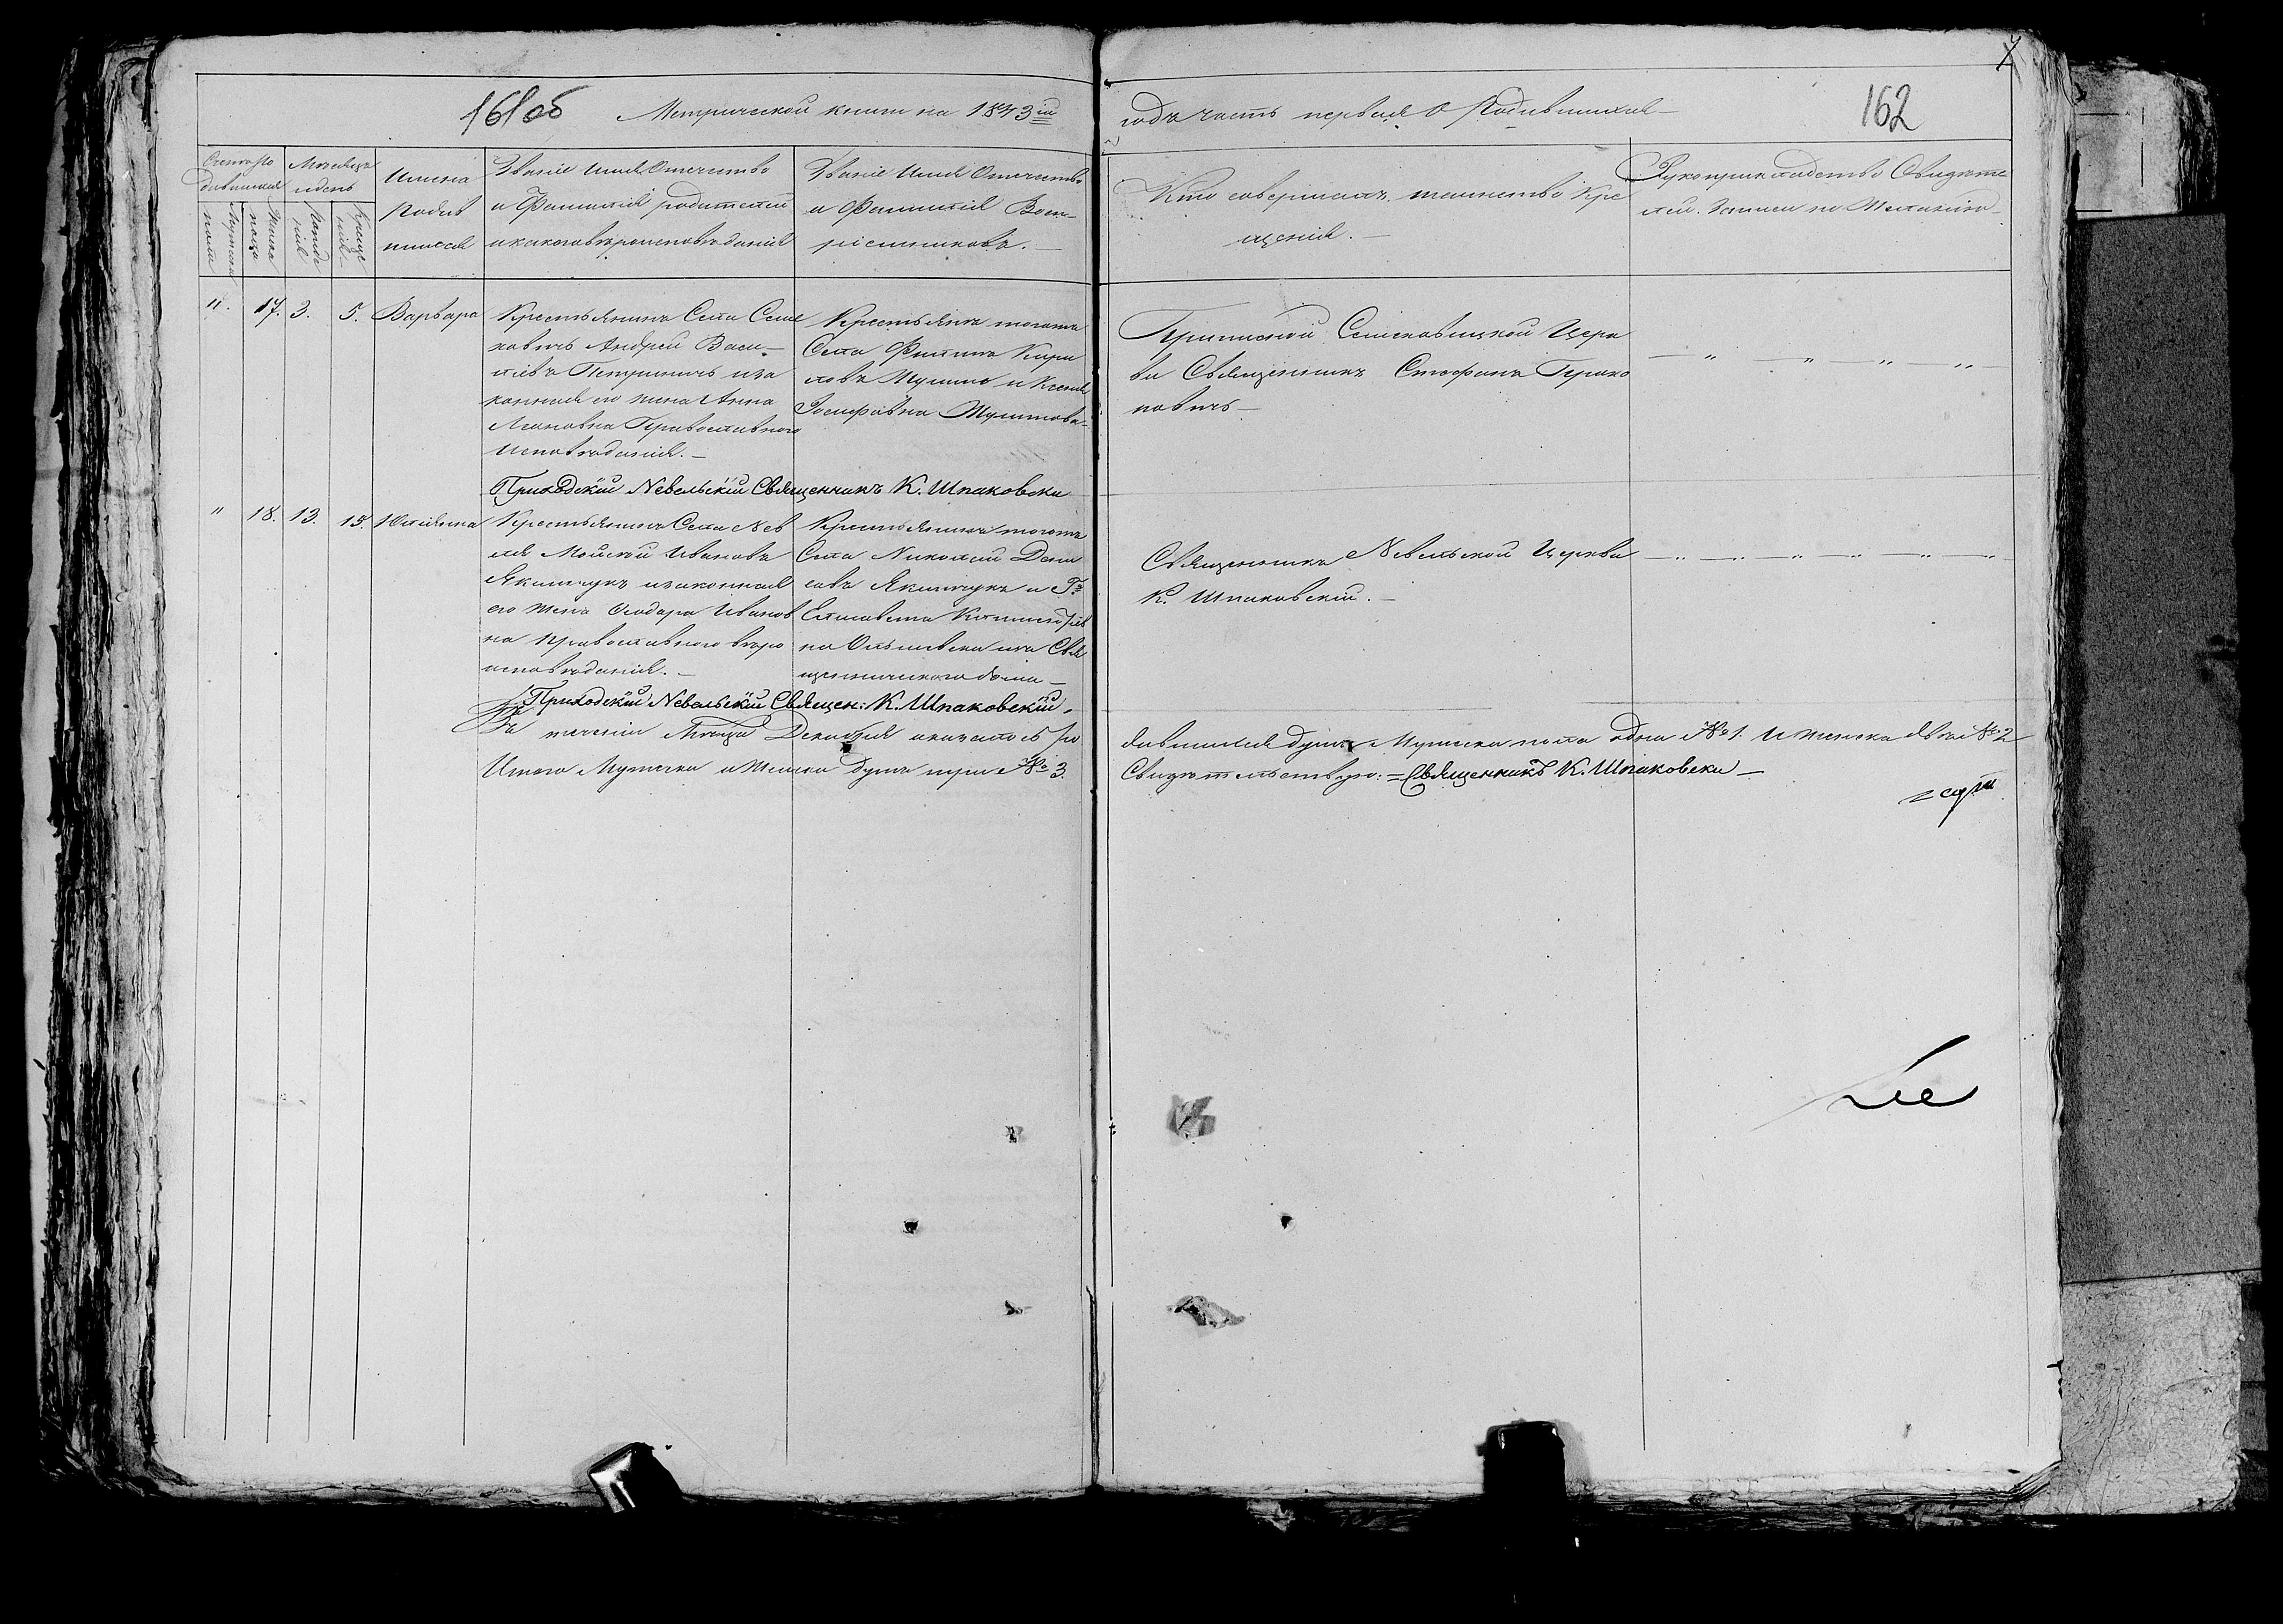 161об Метрической книги на 1843й годъ часть первая О Родившихся 162
Счетъ Ро
дившихся
Мужеска
пола
Женска
пола
Месяцъ
и день
Рожде
нія
Креще
нія
Имена
Родив
шихся
Званіе Имя Отечество
и Фамилія родителей
и какого вѣроисповѣданія
Званіе Имя Отечество
и Фамилія Восп-
ріемниковъ.
Кто совершалъ таинство Кре
щенія.
Рукоприкладство Свидѣте
лей Записи по Желанію
" 17. 3. 5. Варвара
Крестьянинъ Села Семе
ховичъ Андрей Васи-
ліевъ Петрушичъ и за
конная его жена Анна
Православного
Исповѣданія.
Крестьянъ тогожъ
Села Филипъ Кири
ловъ и Ксенія
Іосифовна
Приписной Семеховицкой Церк
ви Священникъ Стефанъ
Приходскій Nевельскій Священникъ К. Шпаковски
" 18. 13. 15. Юліянна
Крестьянинъ Села Nев
ля Мойсей Ивановъ
Якимчукъ и законная
его жена Феодора Иванов
на Православного вѣро
исповѣданія.
Крестьянинъ тогожъ
Села Николай Дени
совъ Якимчукъ и Г-жа
Елисавета
на изъ Свя
щенническаго дома
Священникъ Nевельской Церкви
К. Шпаковскій.
Приходскій Nевельскій Священ: К. Шпаковскій.
Въ теченіи Месяца Декабря оказалось ро
дившихся душъ Мужеска пола одна № 1. И женска двѣ № 2
Итого Мужеска и Женска душъ три № 3.
Свидѣтельствую: = Священникъ К. Шпаковски